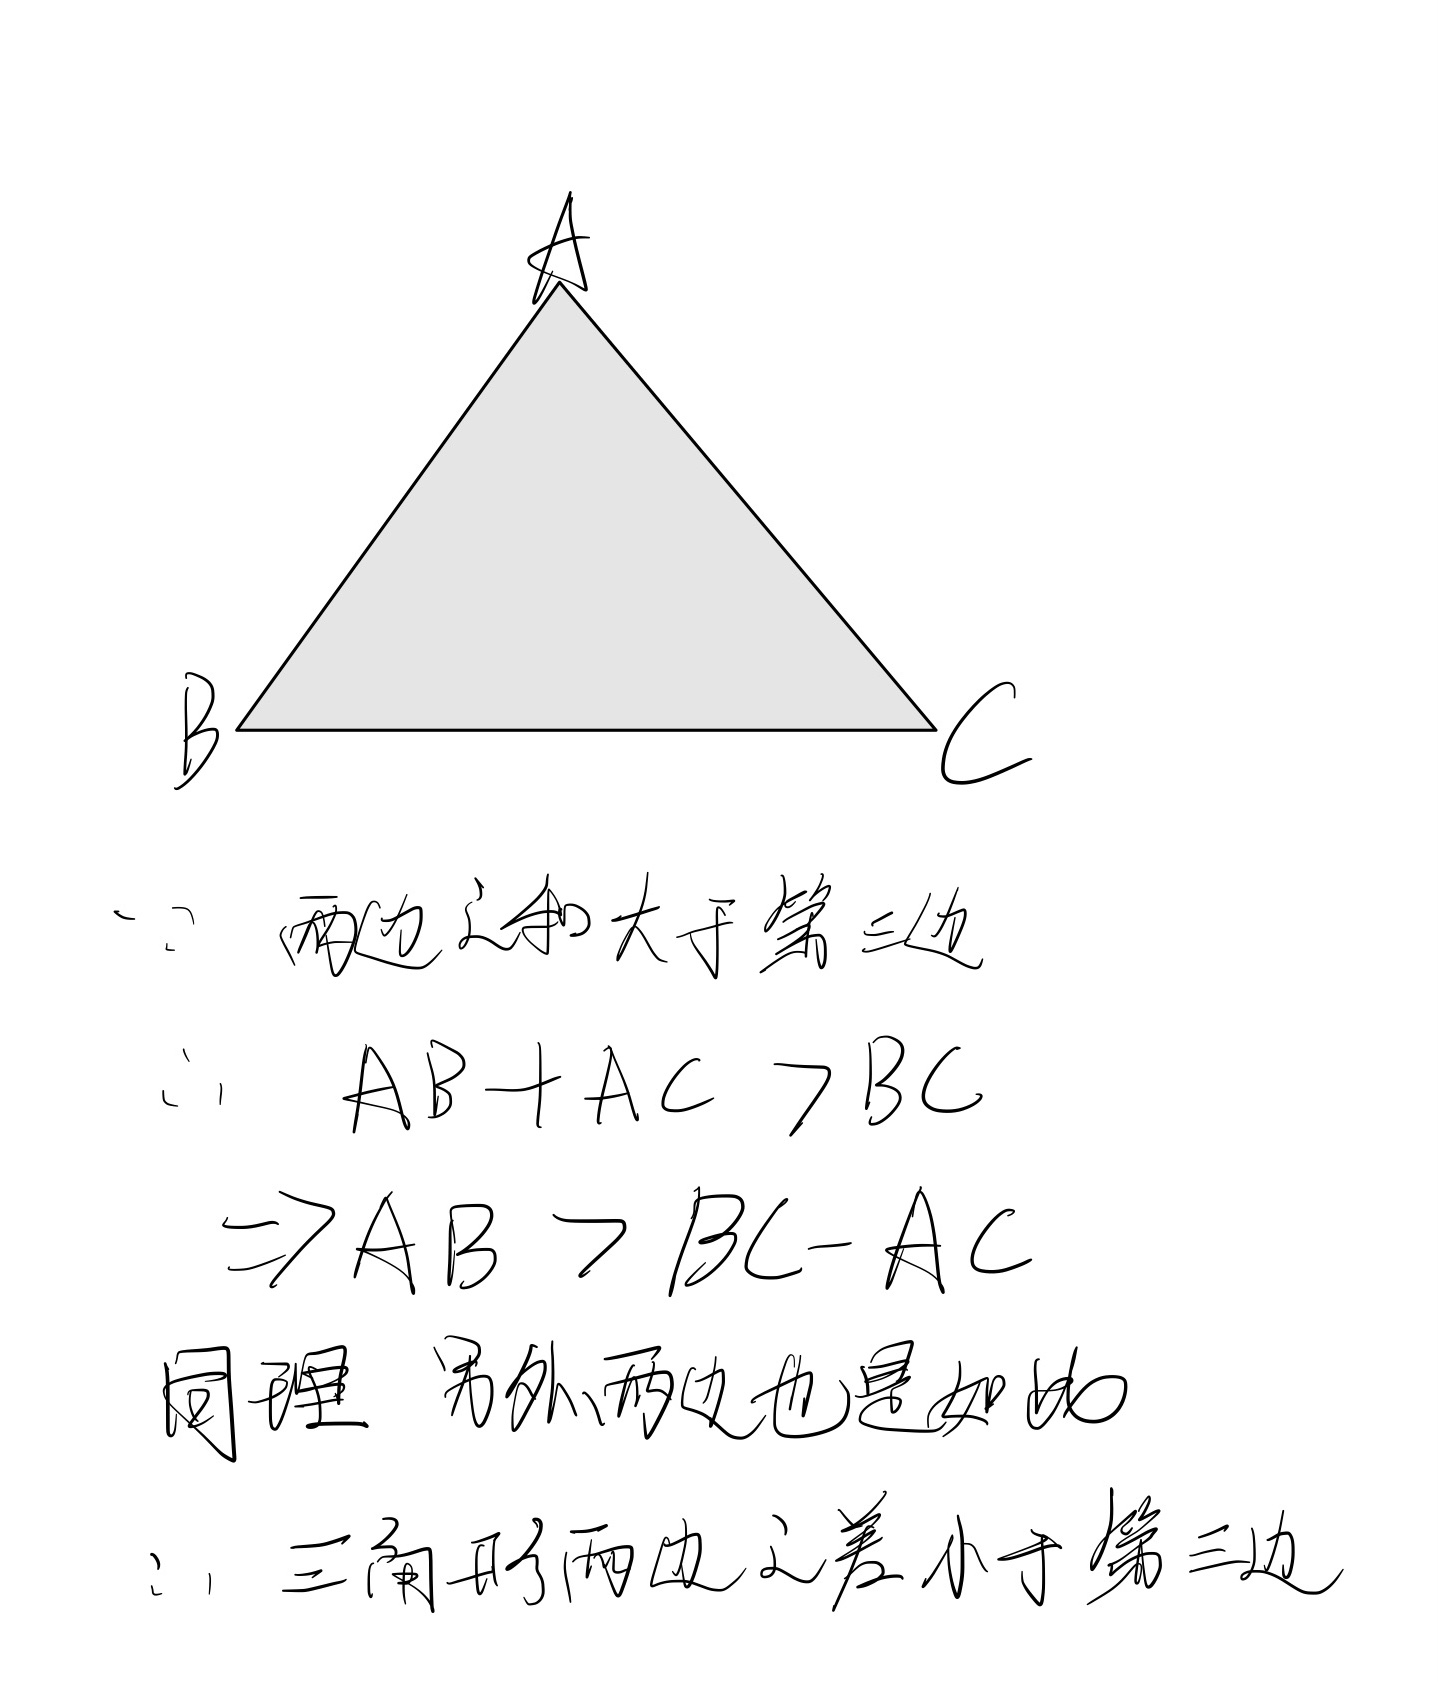 A
B
C
∵ 两边之和大于第三边
∴ AB+AC >BC
⇒AB > BC-AC
同理 另外两边也是如此
∴ 三角形两边之差小于第三边